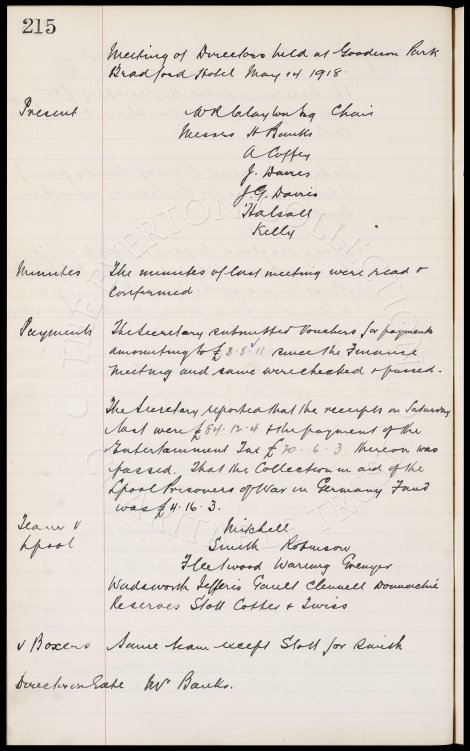 215
Meeting of Directors held at Goodison Park
Bradford Hotel May 14 1918.
Present W R Clayton Esq Chair
Messrs H Banks
A Coffey
J. Davies
J. G. Davies
Halsall
Kelly
Minutes The minutes of last meeting were read &
Confirmed
Payments The Secretary submitted Vouchers for payments
amounting to £ 8 . 8 . 11 since the Finance
Meeting and same were checked & passed.
The Secretary reported that the receipts on Saturday
last were £84 . 12 . 4 & the payment of the
Entertainment Tax £20 . 6 . 3 thereon was
passed. That the Collection in aid of the
Lpool Prisoners of War in Germany Fund
was £4 . 16 . 3.
Team v Mitchell
Lpool Smith Robinson
Fleetwood Wareing Grenyer
Wadsworth Jefferis Gault Clennell Donnachie
Reserves Stott Cotter & Twiss
v Boxers Same team except Stott for Smith
Director on Gate Mr Banks.
THE EVERTON COLLECTION
CHARITABLE TRUST